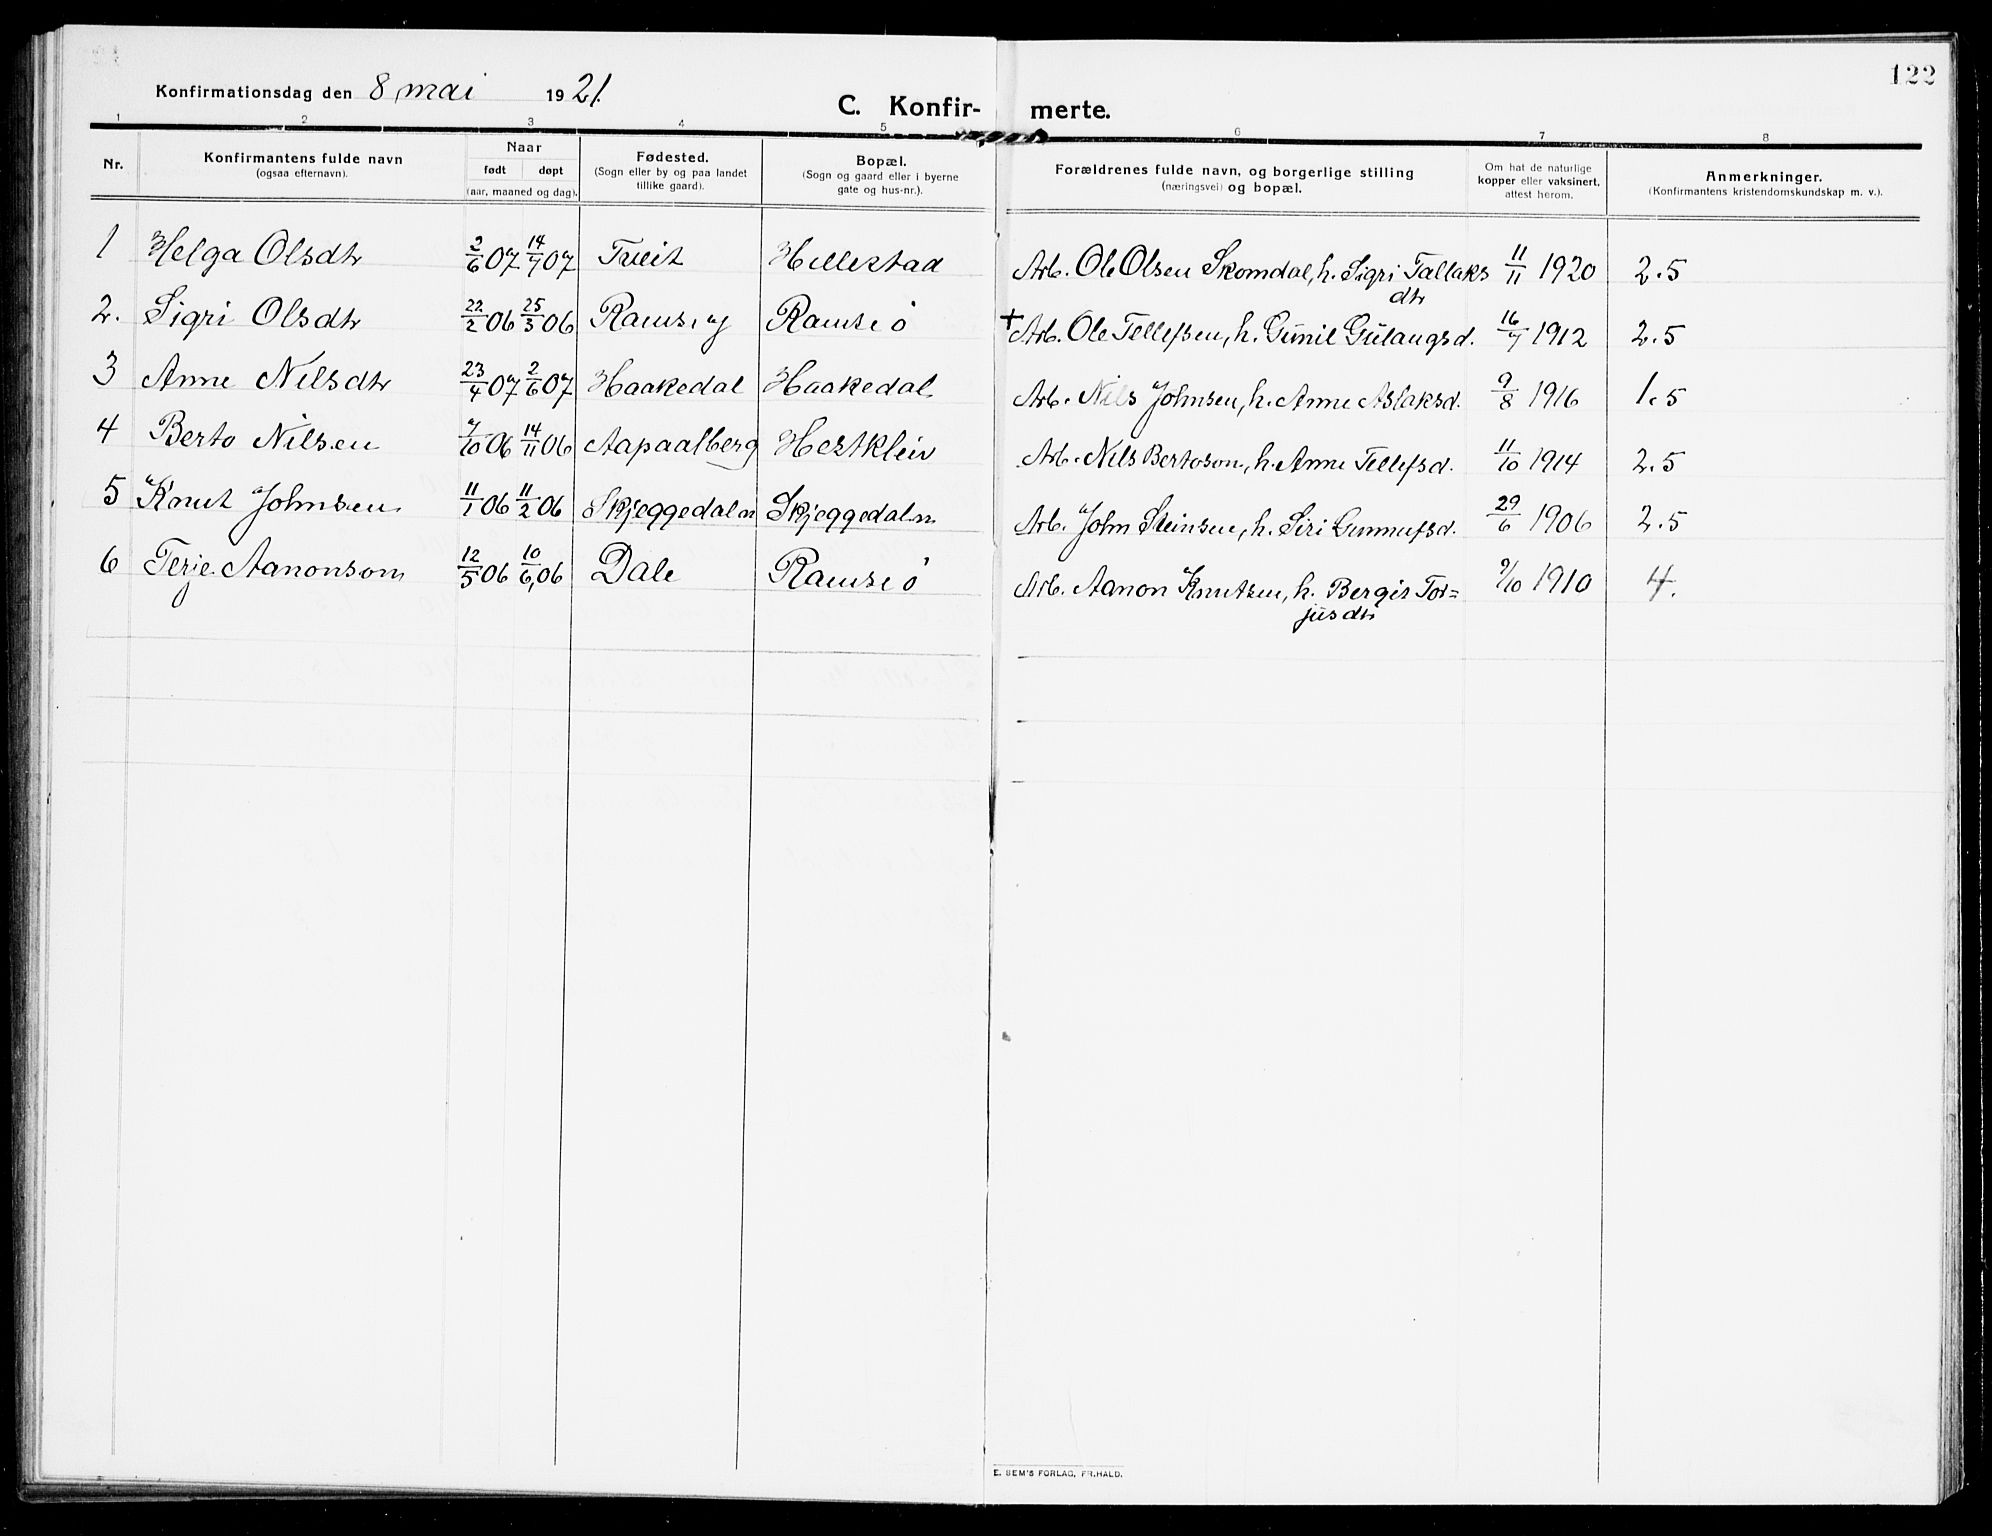 122
Konfirmationsdag den 8 mai 1921.
C. Konfirmerte.
1 2 3 4 5 6 7 8
Nr.
Konfirmantens fulde navn
(ogsaa efternavn).
Naar
født døpt
(aar, maaned og dag).
Fødested.
(Sogn eller by og paa landet
tillike gaard).
Bopæl.
(Sogn og gaard eller i byerne
gate og hus-nr.).
Forældrenes fulde navn, og borgerlige stilling
(næringsvei) og bopæl.
Om hat de naturlige
kopper eller vaksinert,
attest herom.
Anmerkninger.
(Konfirmantens kristendomskundskap m. v.).
1 Helga Olsdtr 2/6 07 14/7 07 Tveit Hillestad Arb. Ole Olsen Skomdal, h. Sigri Tallaks 11/11 1920 2.5
dtr
2. Sigri Olsdtr 22/2 06 25/3 06 Ramse Ramse ø + Arb. Ole Tellefsen, h. Gunil Gulaugsd. 16/7 1912 2.5
3 Anne Nilsdtr 23/4 07 2/6 07 Haakedal Haakedal Arb. Nils Johnsen, h. Anne Aslaksd. 9/8 1916 1.5
4 Berto Nilsen 7/10 06 14/11 06 Aapaalberg Hestkleiv Arb. Nils Bertoson, h. Anne Tellefsd. 11/10 1914 2.5
5 Knut Johnsen 11/1 06 11/2 06 Skjeggedaln Skjeggedaln Arb. John Steinsen, h. Siri Gunnufsd. 29/6 1906 2.5
6 Terje Aanonsom 12/5 06 10/6 06 Dale Ramse ø Arb. Aanon Knutsen, h. Bergit Tor=
jusdtr 9/10 1910 4.
E. SEM'S FORLAG, FR.HALD.